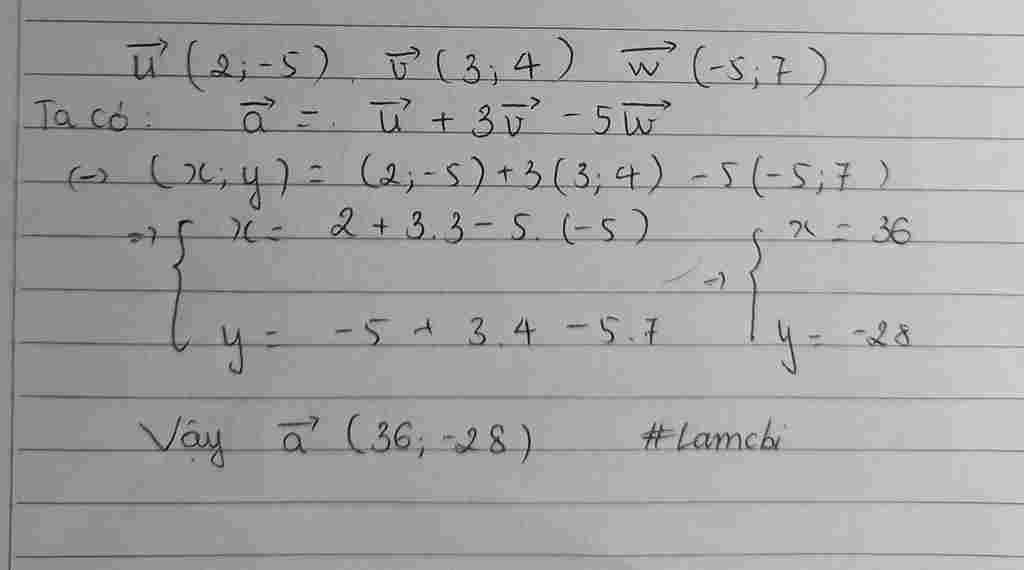 u⃗ (2;-5). v⃗ (3;4) w⃗ (-5;7)
Ta có: a⃗ = u⃗ + 3v⃗ - 5w⃗
(=) (x;y) = (2;-5)+3(3;4) -5(-5;7)
=> { x = 2 + 3.3 - 5.(-5) => { x = 36
y = -5 + 3.4 - 5.7 y = -28
Vậy a⃗ (36;-28) #Lamchi